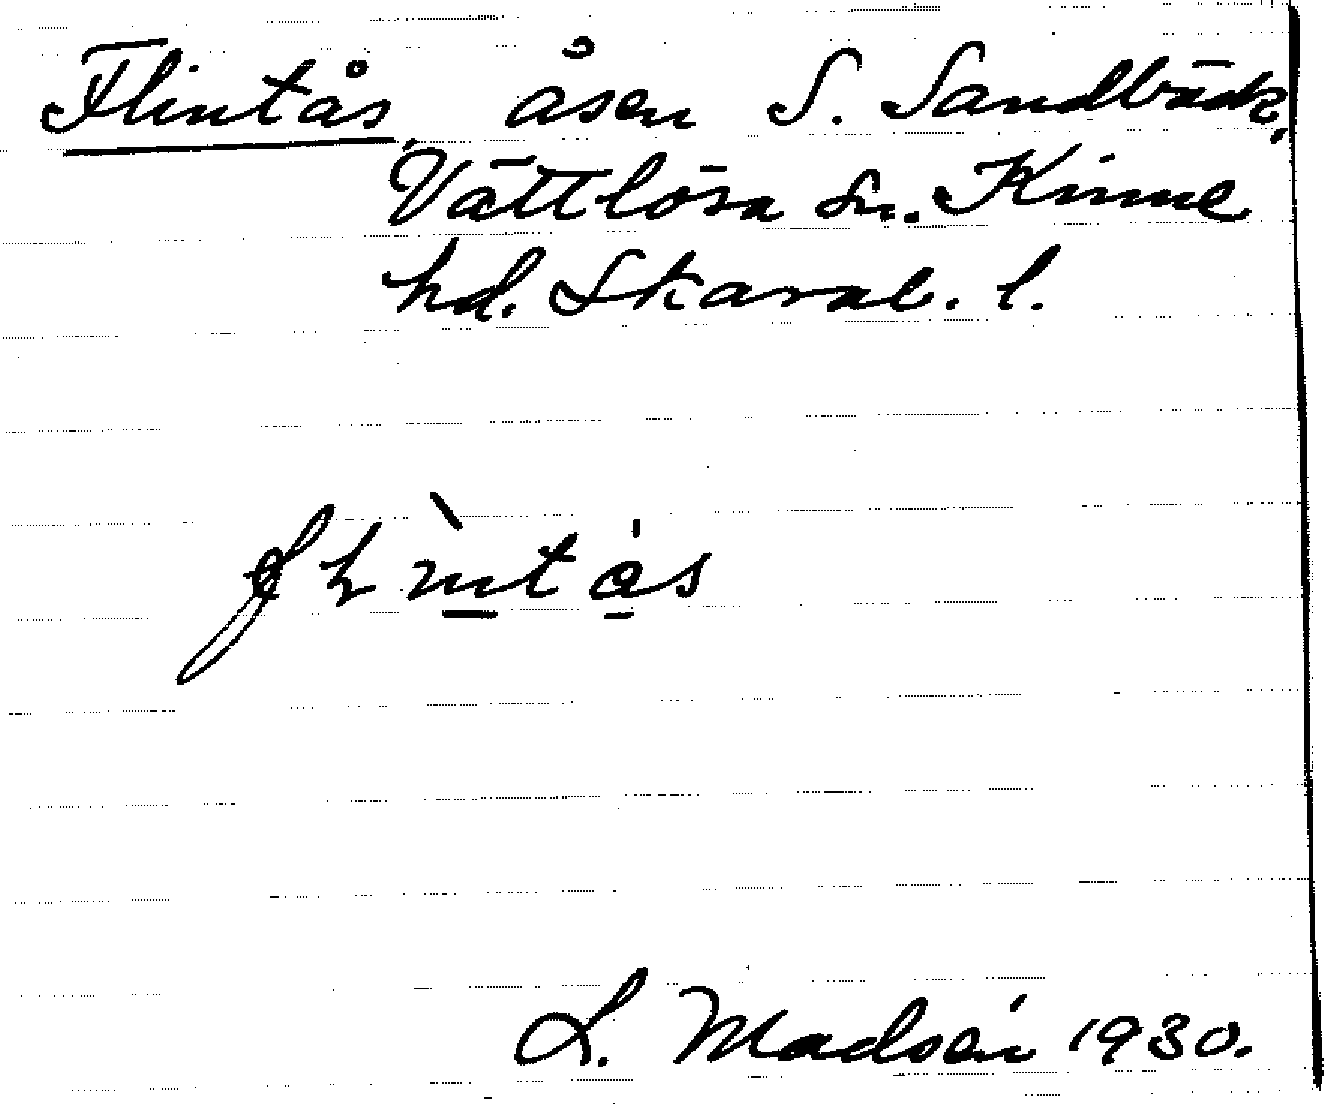 Flintås, åsen S. Sandbäck,
Vättlösa sn. Kinne
hd. Skarab. l.
L. Madsén 1930.